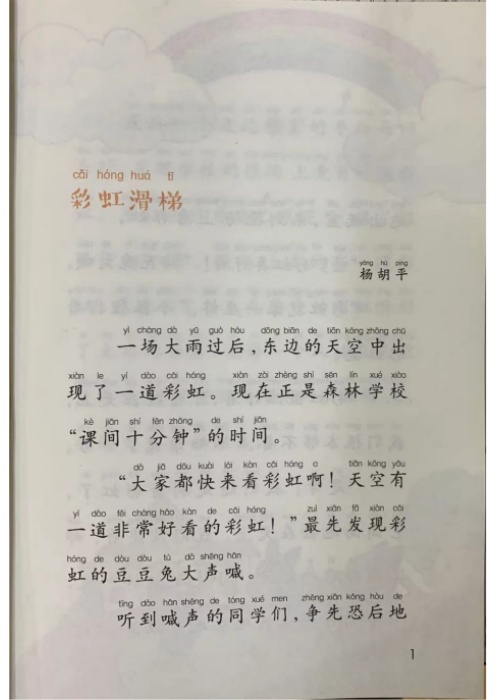 cǎi hóng huá tī
彩虹滑梯
yáng hú píng
杨胡平
yì chǎng dà yǔ guò hòu dōng biān de tiān kōng zhōng chū
一场大雨过后，东边的天空中出
xiàn le yí dào cǎi hóng xiàn zài zhèng shì sēn lín xué xiào
现了一道彩虹。现在正是森林学校
kè jiān shí fēn zhōng de shí jiān
“课间十分钟”的时间。
dà jiā dōu kuài lái kàn cǎi hóng a tiān kōng yǒu
“大家都快来看彩虹啊！天空有
yí dào fēi cháng hǎo kàn de cǎi hóng zuì xiān fā xiàn cǎi
一道非常好看的彩虹！”最先发现彩
hóng de dòu dòu tù dà shēng hǎn
虹的豆豆兔大声喊。
tīng dào hǎn shēng de tóng xué men zhēng xiān kǒng hòu de
听到喊声的同学们，争先恐后地
1